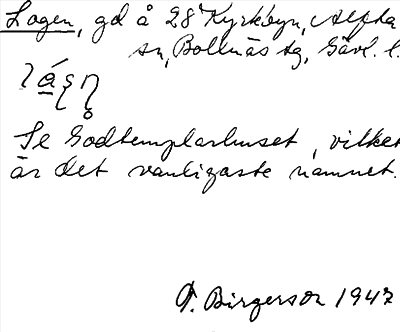 Logen, gd å 28 Kyrkbyn, Alfta
sn, Bollnäs tg, Gävl. l.
Se Godtemplarhuset, vilket
är det vanligaste namnet.
F. Birgerson 1947